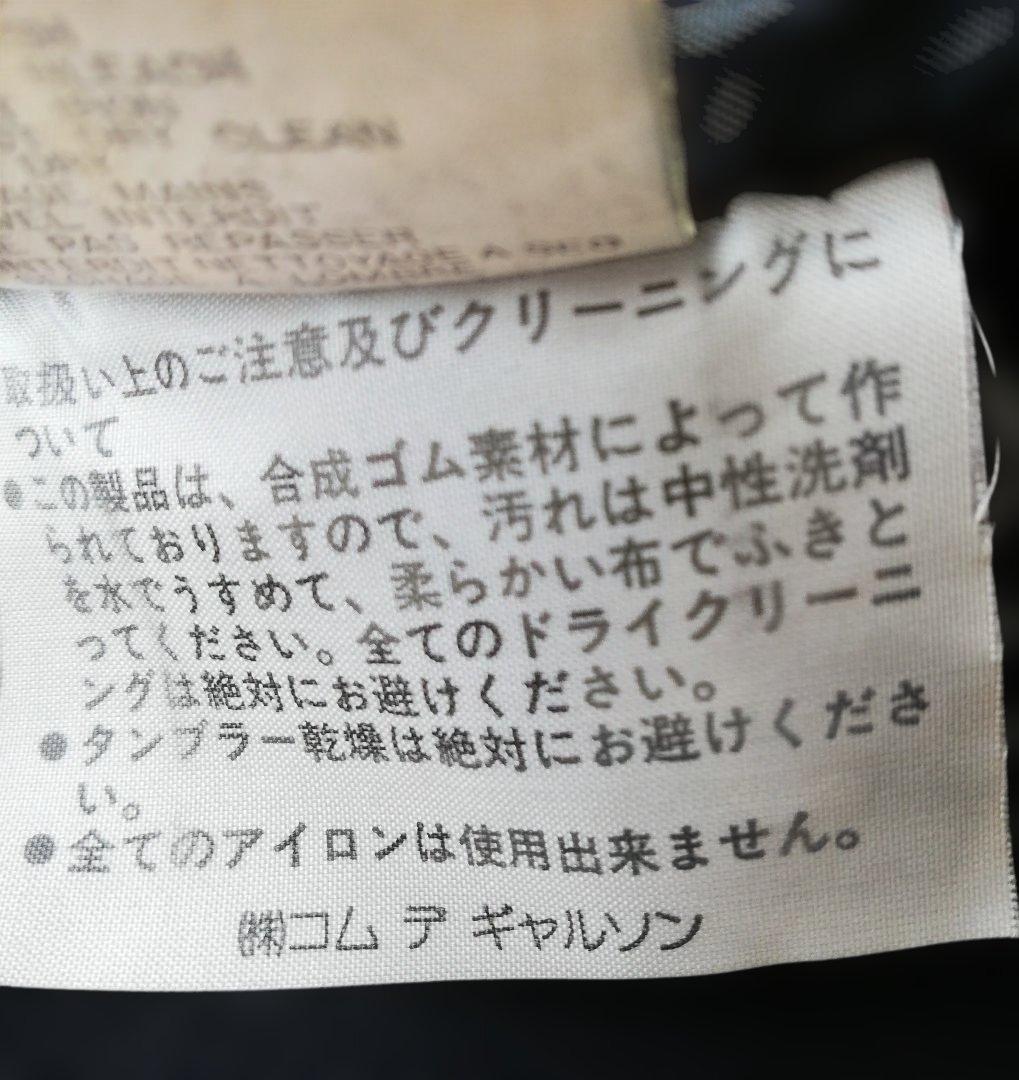 CLEAN
MAINS
INTERDIT
PAS REPASSER
NETTOYAGE A SEC
A L'OMBRE
取扱い上のご注意及びクリーニングに
ついて
●この製品は、合成ゴム素材によって作
られておりますので、汚れは中性洗剤
を水でうすめて、柔らかい布でふきと
ってください。全てのドライクリーニ
ングは絶対にお避けください。
●タンブラー乾燥は絶対にお避けくださ
い。
●全てのアイロンは使用出来ません。
㈱コム デ ギャルソン